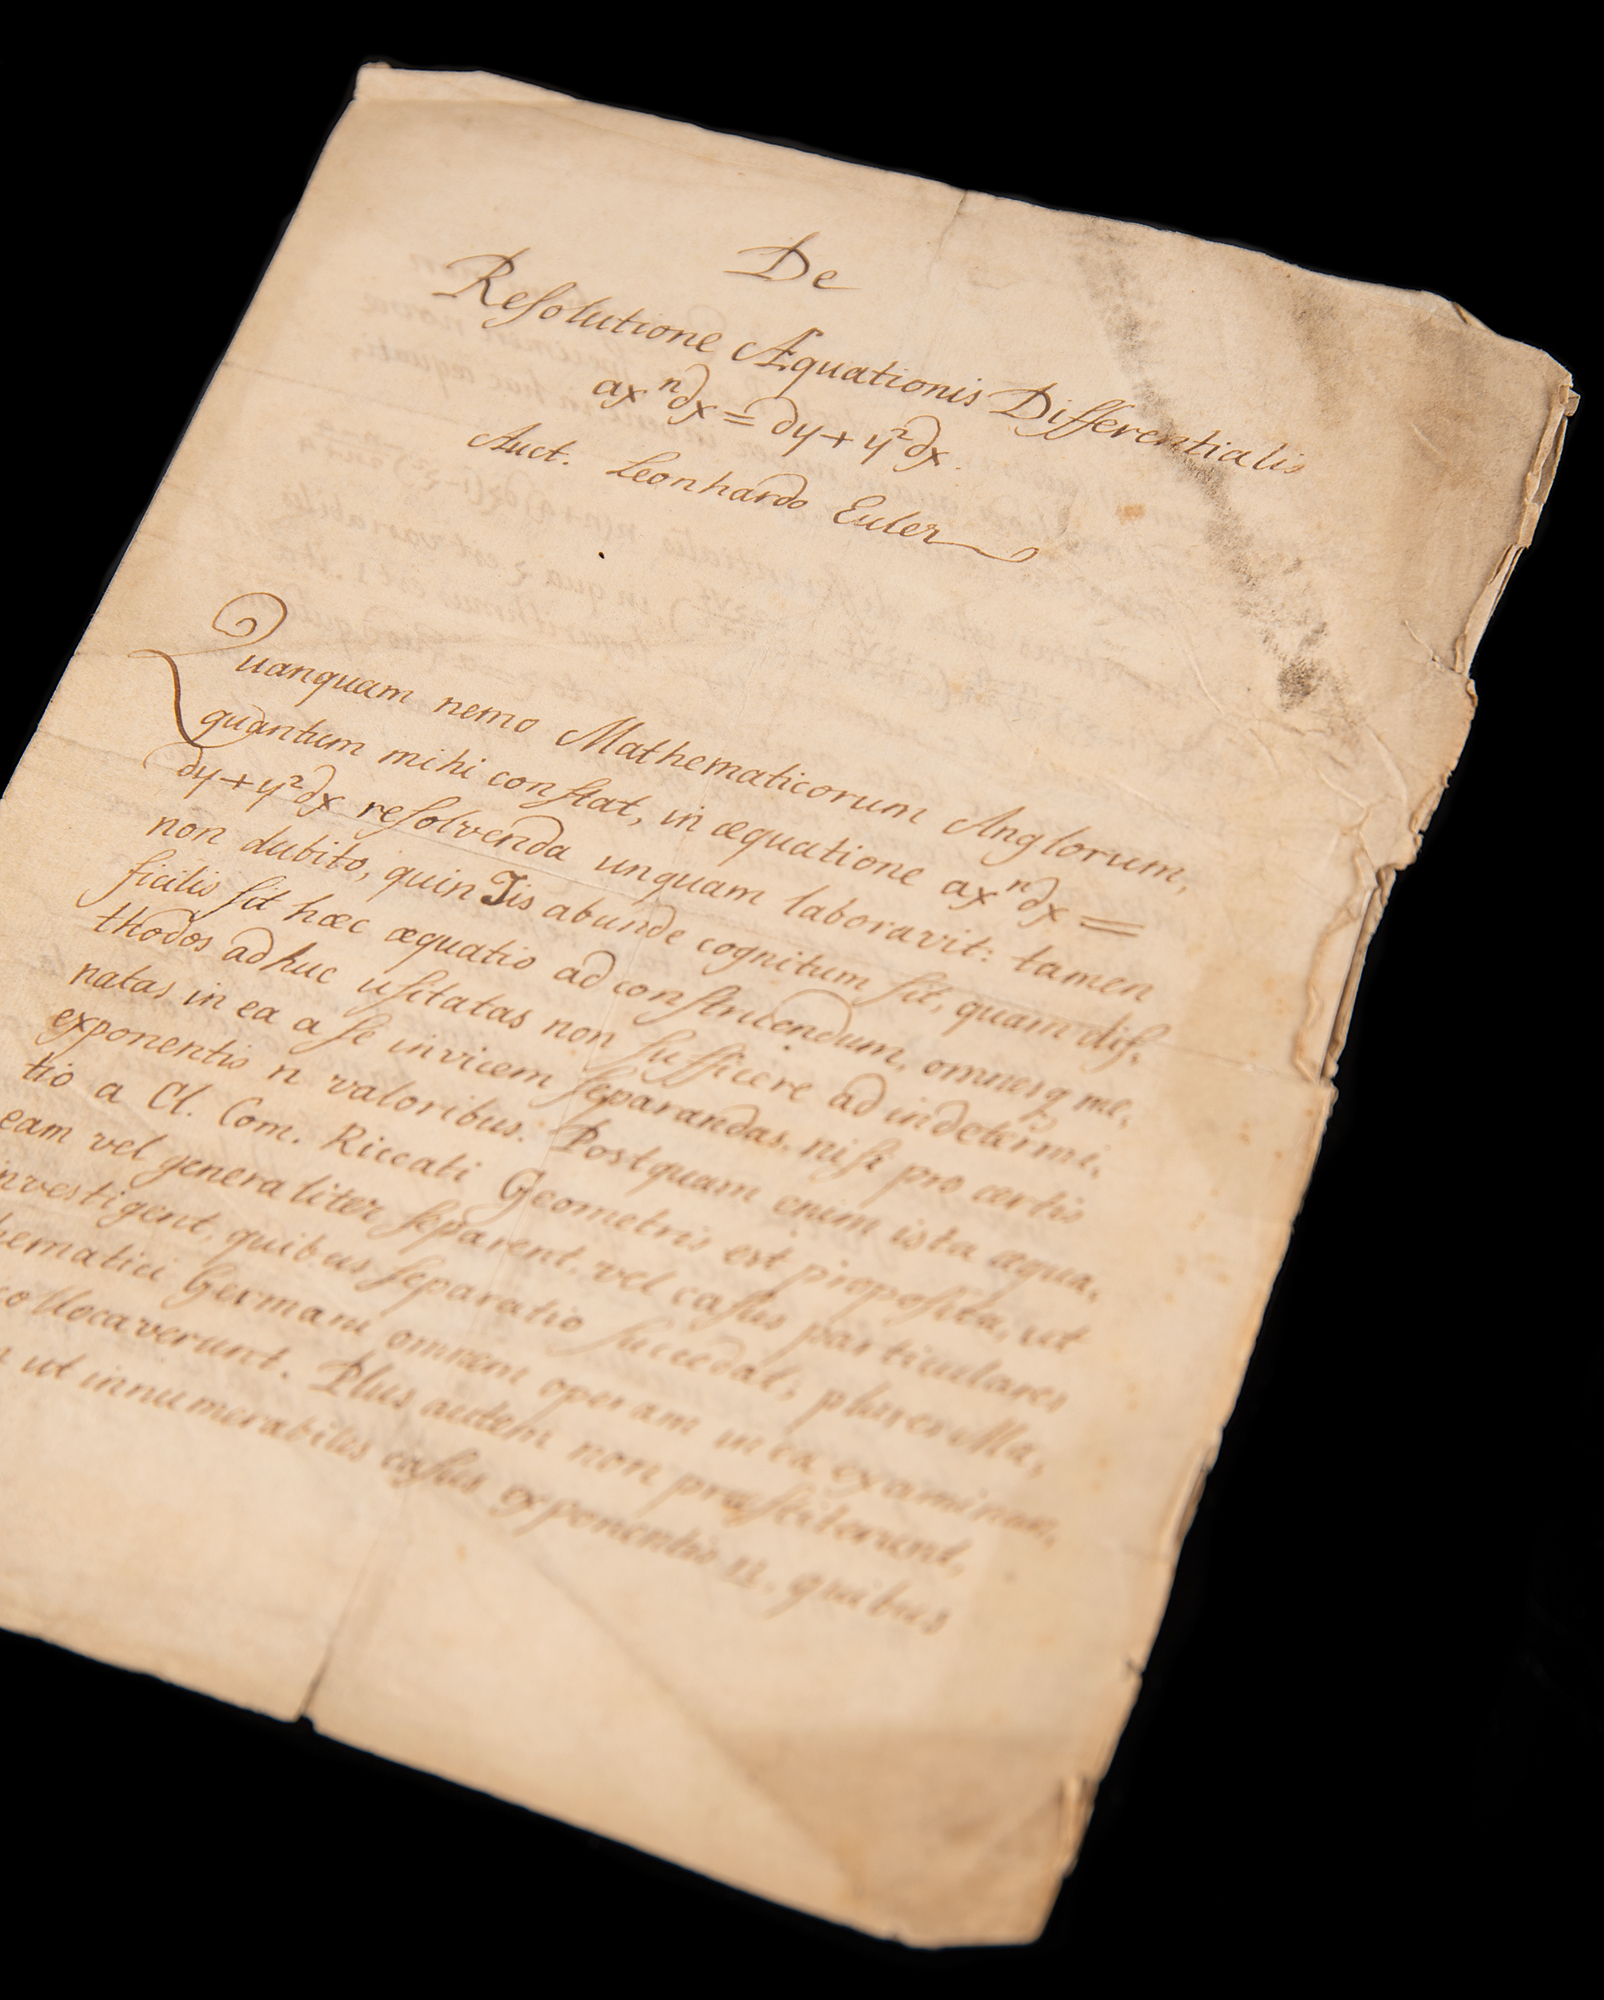 De
Reſolutione Æquationis Differentialis
axⁿdx = dy + y²dx.
Auct. Leonhardo Euler
Quanquam nemo Mathematicorum Anglorum,
quantum mihi conſtat, in æquatione axⁿdx =
dy + y²dx reſolvenda unquam laboravit: tamen
non dubito, quin Iis abunde cognitum ſit, quam dif,
ficilis ſit hæc æquatio ad conſtruendum, omnesq me,
thodos adhuc uſitatas non ſufficere ad indetermi,
natas in ea a ſe invicem ſeparandas, niſi pro certis
exponentis n valoribus. Postquam enim ista æqua,
tio a Cl. Com. Riccati Geometris est propoſita, ut
eam vel generaliter ſeparent, vel caſus particulares
investigent, quibus ſeparatio ſuccedat, plures Ma,
hematici Germani omnem operam in ea examinan,
collocaverunt. Plus autem non præſtiterunt,
ut innumerabiles caſus exponentis n, quibus